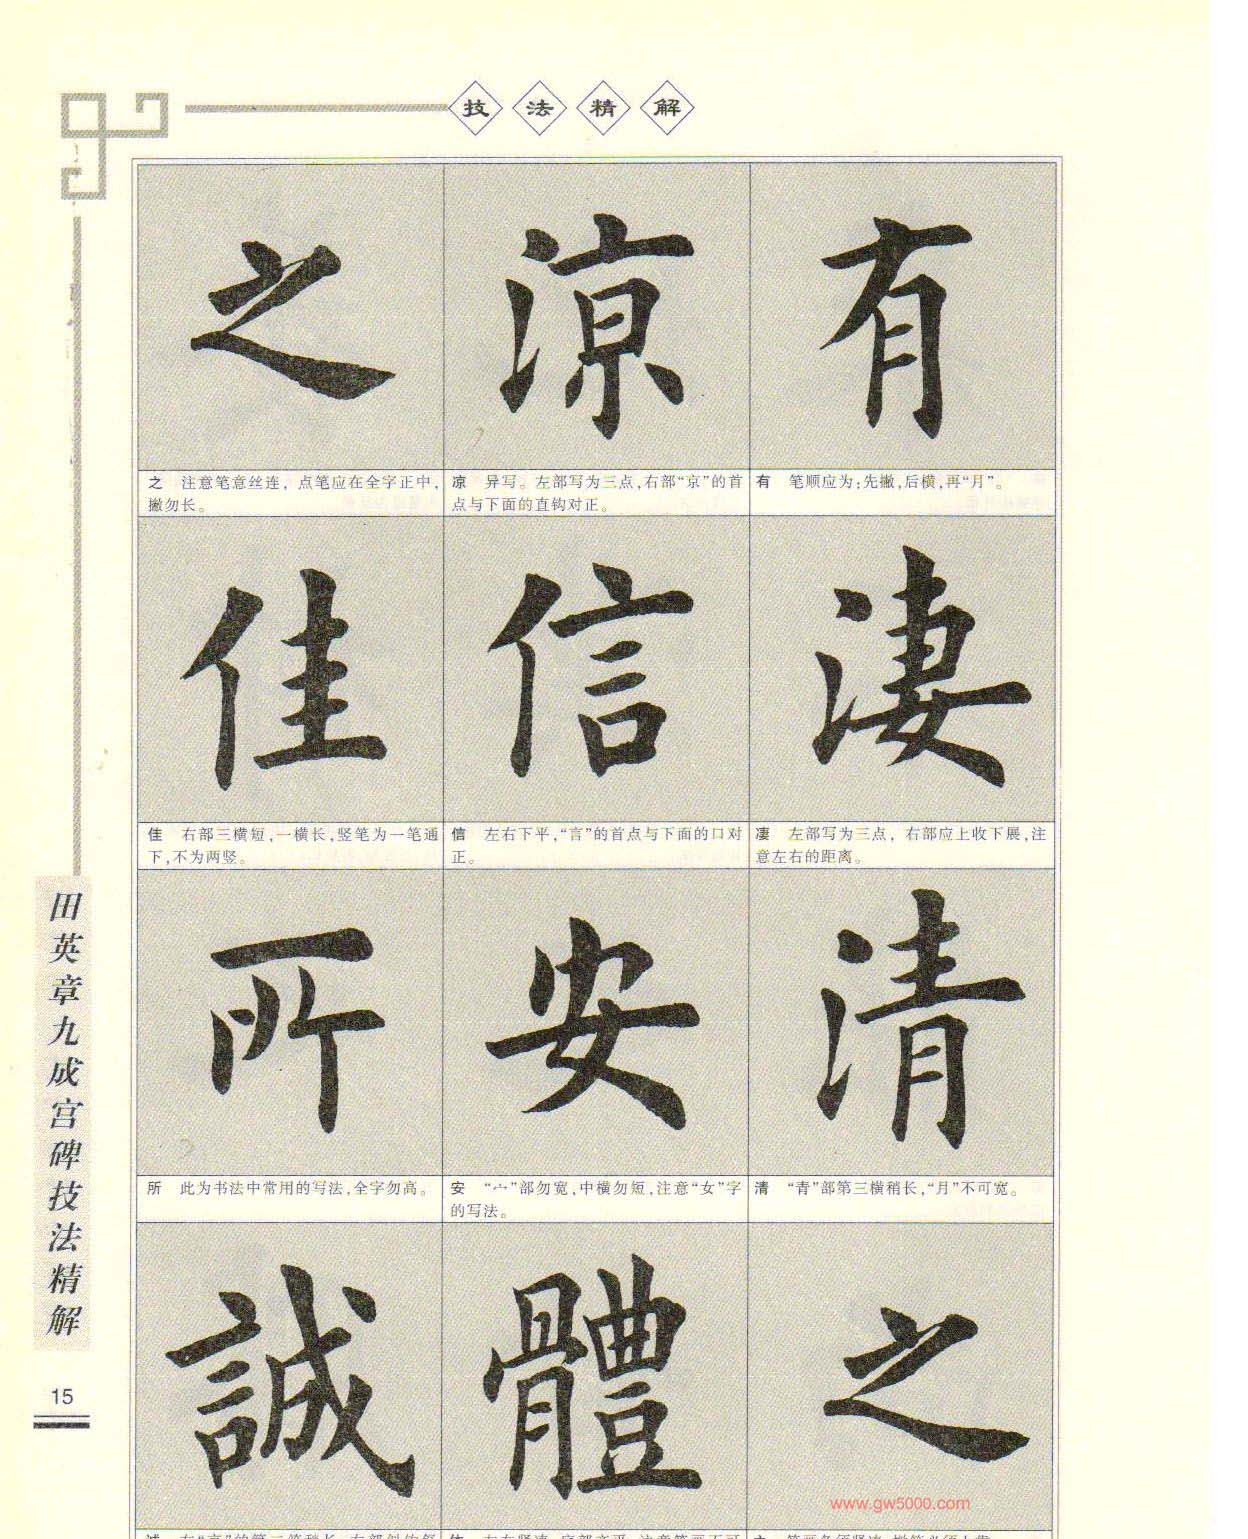 技法精解
之 涼 有
之 注意笔意丝连，点笔应在全字正中，
撇勿长。
凉 异写。左部写为三点，右部“京”的首
点与下面的直钩对正。
有 笔顺应为；先撇，后横，再“月”。
佳 信 淒
佳 右部三横短，一横长，竖笔为一笔通
下，不为两竖。
信 左右下平，“言”的首点与下面的口对
正。
凄 左部写为三点，右部应上收下展，注
意左右的距离。
所 安 清
所 此为书法中常用的写法，全字勿高。
安 “宀”部勿宽，中横勿短，注意“女”字
的写法。
清 “青”部第三横稍长，“月”不可宽。
誠 體 之
www.gw5000.com
田英章九成宫碑技法精解
15